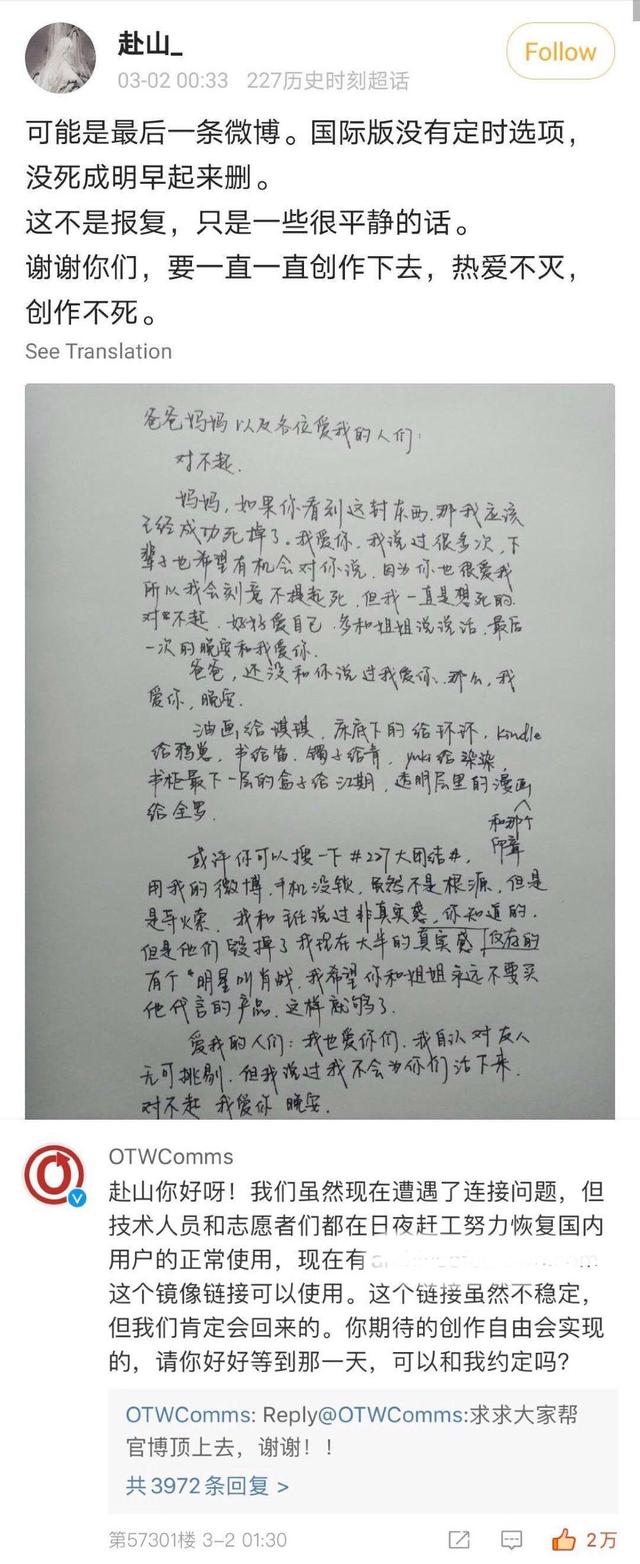 赴山_
03-02 00:33 227历史时刻超话
Follow
可能是最后一条微博。国际版没有定时选项，
没死成明早起来删。
这不是报复，只是一些很平静的话。
谢谢你们，要一直一直创作下去，热爱不灭，
创作不死。
See Translation
爸爸妈妈以及各位爱我的人们：
对不起.
妈妈，如果你看到这封东西.那我应该
已经成功死掉了。我爱你.我说过很多次，下
辈子也希望有机会对你说.因为你也很爱我
所以我会刻意不提起死.但我一直是想死的.
对不起.好好爱自己.多和姐姐说说话.最后
一次的晚安和我爱你.
爸爸，还没和你说过我爱你.那么，我
爱你，晚安.
油画给琪琪，床底下的给环环，kindle
给鸦崽，书给笛.镯子给青，yuki给染染，
书柜最下一层的盒子给江期，透明层里的漫画
和那个
印章
给全罗.
或许你可以搜一下#227大团结#，
用我的微博.手机没锁.虽然不是根源，但是
是导火索.我和 说过非真实感，你知道的.
但是他们毁掉了我现在大半的真实感 仅有的
有个"明星叫肖战.我希望你和姐姐永远不要买
他代言的产品.这样就够了.
爱我的人们：我也爱你们.我自认对友人
无可挑剔.但我说过我不会为你们活下来.
对不起 我爱你 晚安.
OTWComms
赴山你好呀！我们虽然现在遭遇了连接问题，但
技术人员和志愿者们都在日夜赶工努力恢复国内
用户的正常使用，现在有
这个镜像链接可以使用。这个链接虽然不稳定，
但我们肯定会回来的。你期待的创作自由会实现
的，请你好好等到那一天，可以和我约定吗？
OTWComms: Reply@OTWComms:求求大家帮
官博顶上去，谢谢！！
共3972条回复 >
第57301楼 3-2 01:30
2万